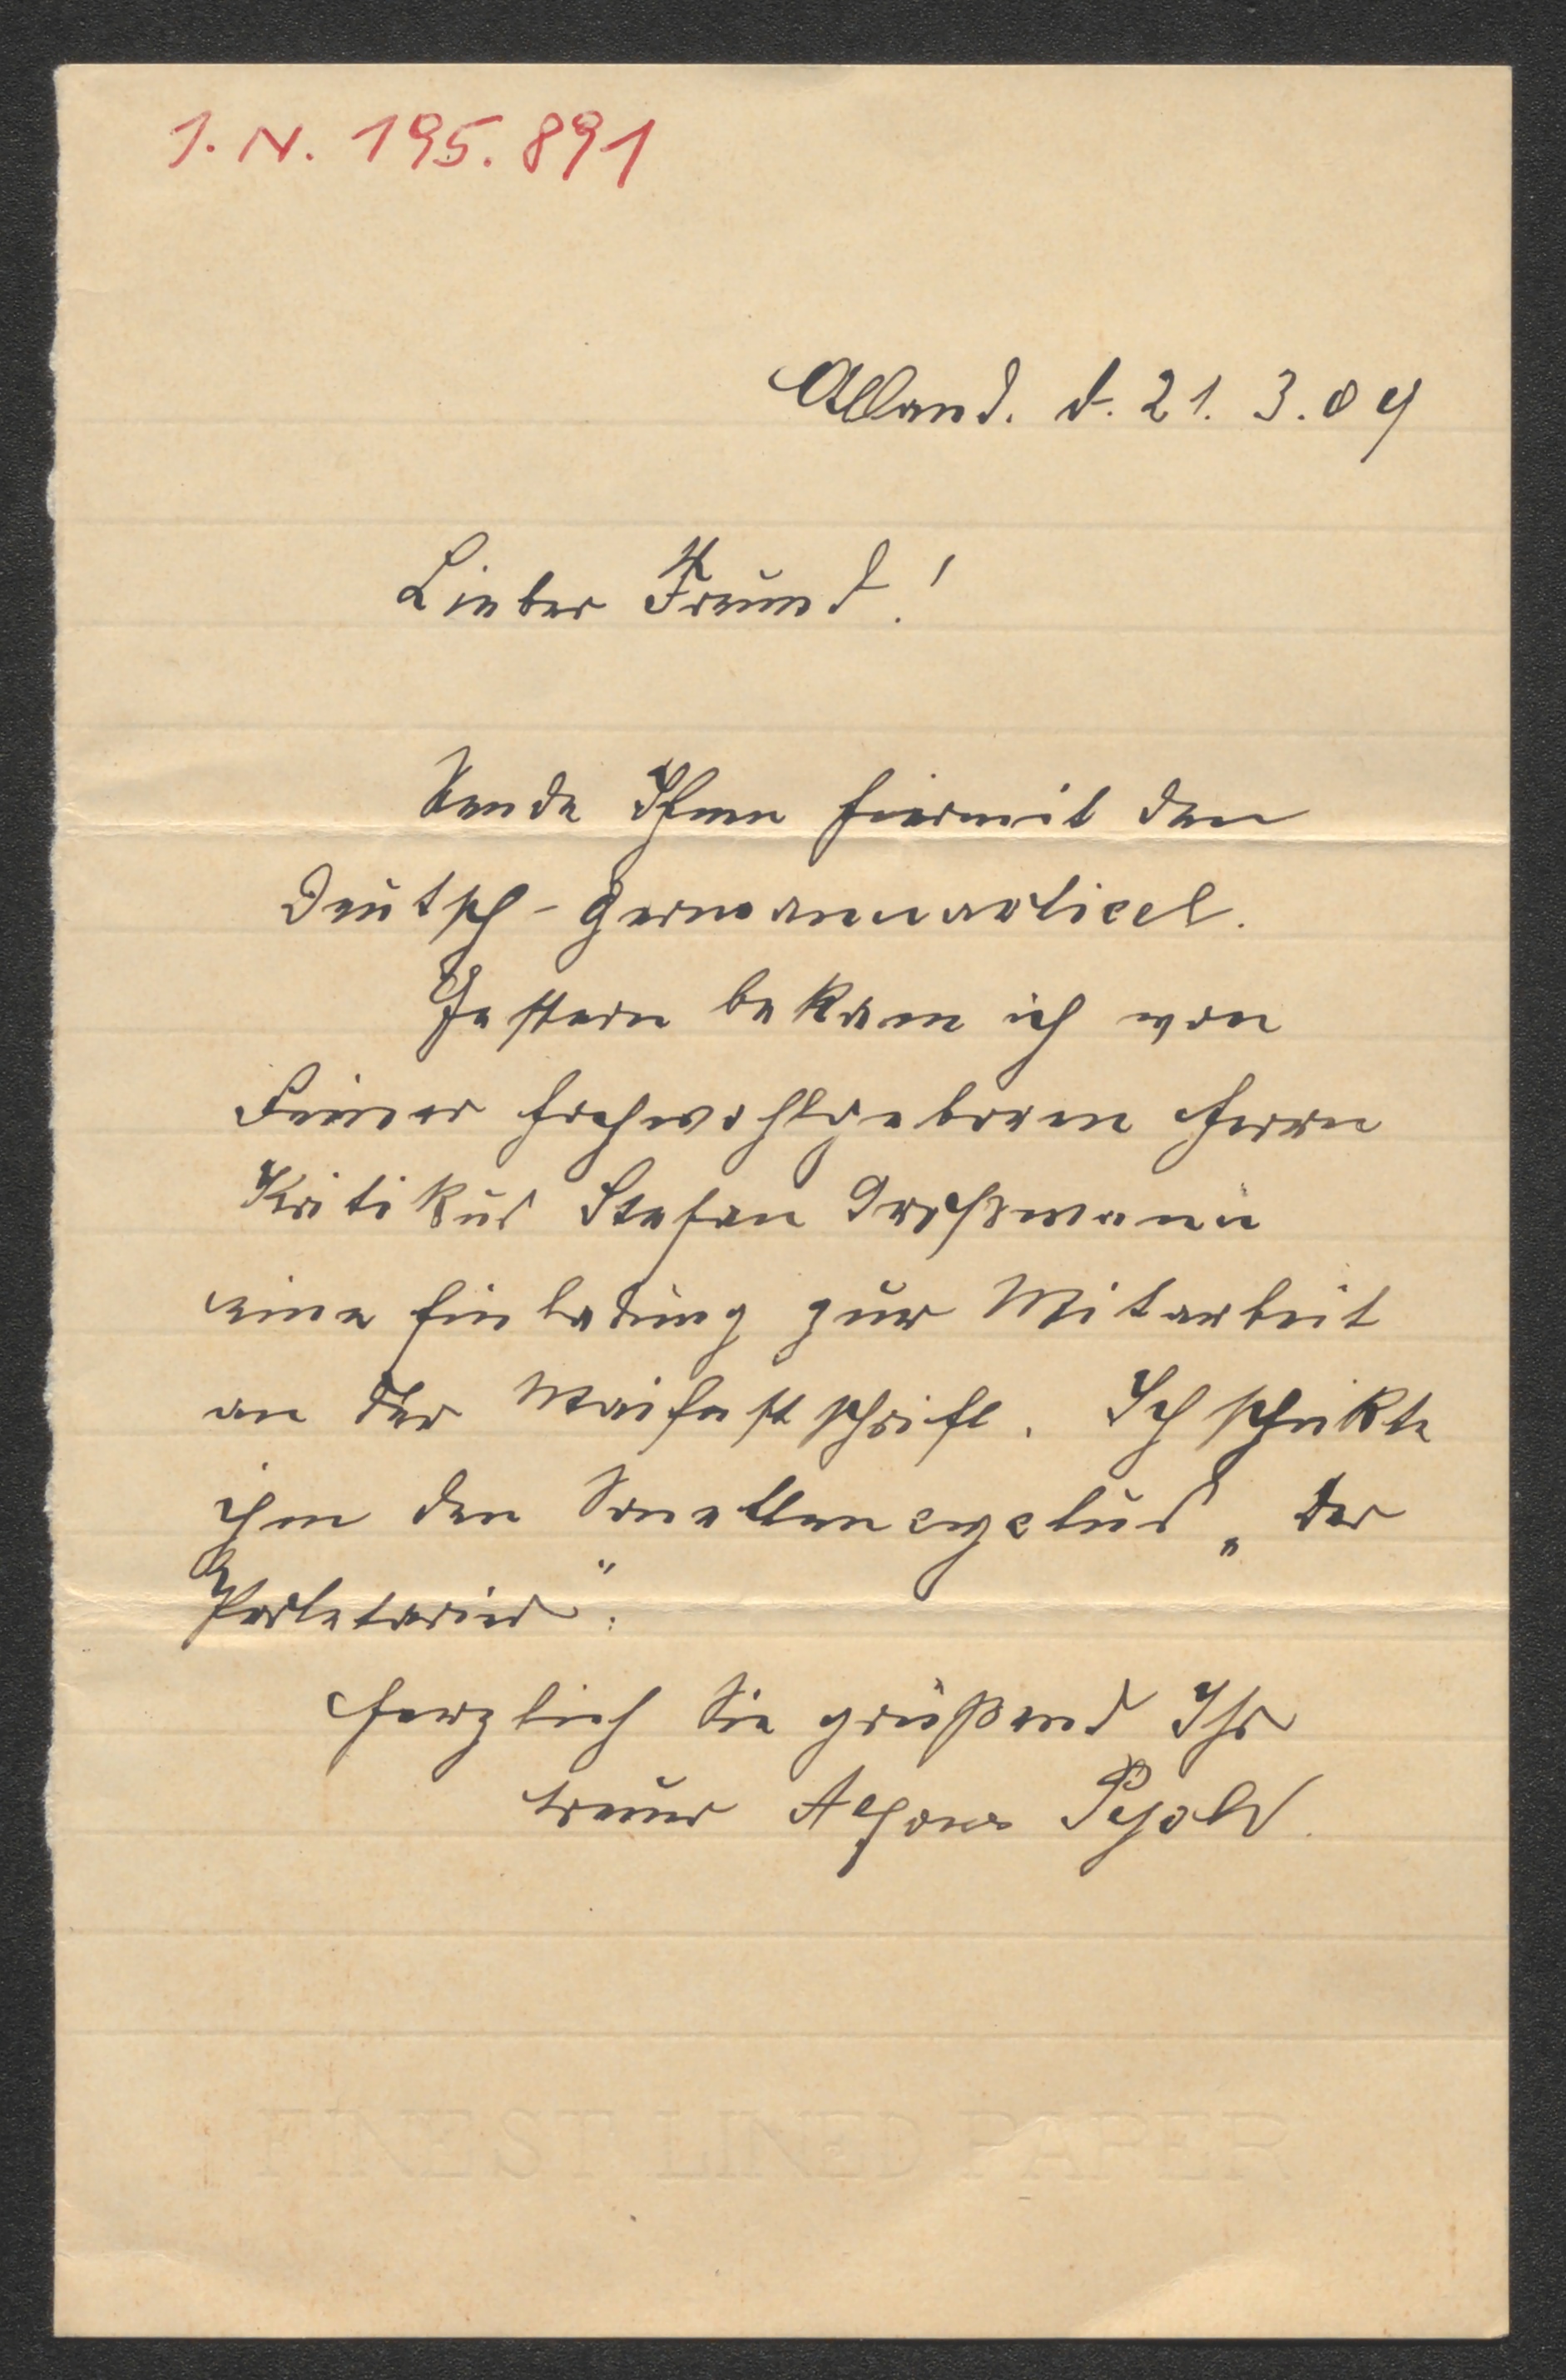 J. N. 195.891
Alland. d. 21. 3. 09
Lieber Freund!
Sende Ihnen hiermit den
Deutsch-Germanenarticel.
Gestern bekam ich von
Seiner hochwohlgeboren Herrn
Kritikus Stefan Großmann
eine Einladung zur Mitarbeit
an der Maifestschrift. Ich schikte
ihm den Sonettencyclus „der
Proletarier“.
Herzlich Sie grüßend Ihr
treuer Alfons Petzold.
FINEST LINED PAPER